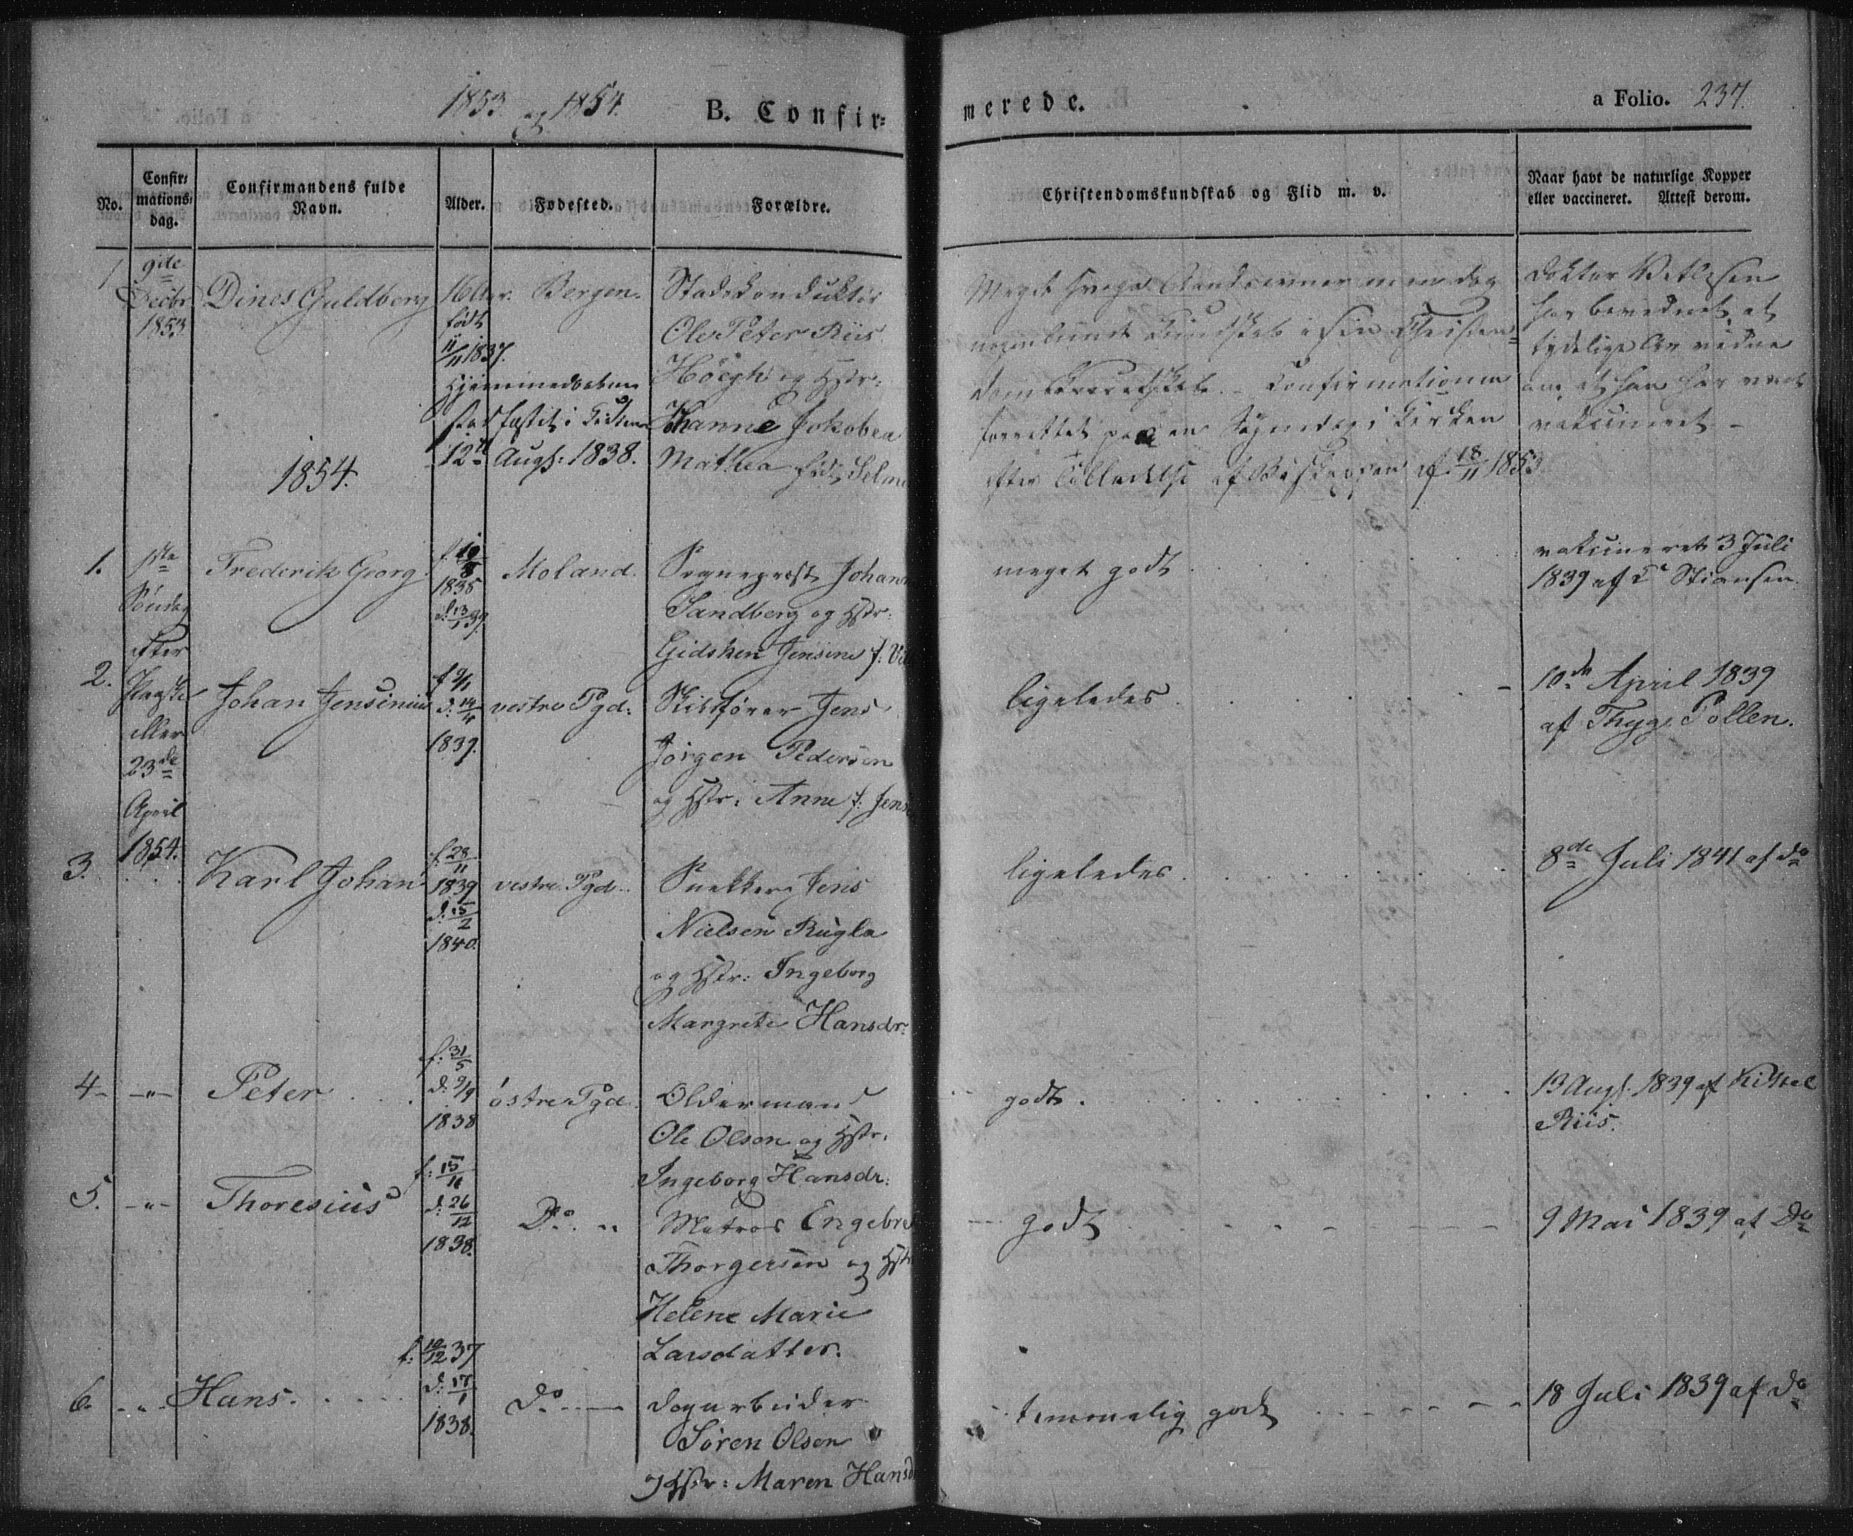 1853 og 1854. B. Confir= merede. a Folio. 237.
No. Confir= mations= dag. Confirmandens fulde Navn. Alder. Fødested. Forældre. Christendomskundskab og Flid m. v. Naar havt de naturlige Kopper eller vaccineret. Attest derom.
1 9de Decbr 1853 Dines Guldberg 16 Aar. født 11/11 1837. Hjemmedøbt
stadfæstet i Kirken 12te Aug: 1838.
Bergen.
Stadskonduktør
Ole Peter Riis
Höegh og Hstr:
Hanne Jakobea
Mathea født Selme
Meget svage Aandsevner men dog
nogenlunde Kundskab i sin Christen=
domskundskab. - Confirmationen
forrettet paa en Søgnedag i Kirken
efter Tilladelse af Biskoppen af 18/11 1853
Doktor Vetlesen
har bevidnet, at
tydelige Ar vidne
om, at han har været
vakcineret -
1854.
1. 1ste Søndag efter Paaske eller 23de April 1854.
Frederik Georg
f. 10/8 1838 d: 13/1 39.
Moland.
Sognepræst Johan
Sandberg og Hstr:
Gidsken Jensine f:
meget godt
vakcineret 3 Juli
1839 af C Stiansen.
2. Johan Jensenius
d: 14/4 1839.
vestre Pgd:
Skibsfører Jens
Jörgen Pedersen
og Hstr: Anne f: Jens
ligeledes.
10de April 1839
af Thyge Pollen.
3. Karl Johan
f. 28/11 1839 d: 15/2 1840.
vestre Pgd.
Snekker Jens
Nielsen Rugla
og Hstr: Ingeborg
Margrete Hansdr:
ligeledes.
8de Juli 1841 af do
4 -"- Peter
f: 31/5 d: 9/9 1838
østre Pgd.
Oldermand
Ole Olsen og Hstr.
Ingeborg Hansdr:
godt.
13 Aug. 1839 af Kittel
Riis.
5. -"- Thoresius
f: 15/11 d: 26/12 1838.
Do. "
Matros Engebret
Thorgersen og Hstr
Helene Marie
Larsdatter.
godt
9 Mai 1839 af Do
6. -"- Hans.
f: 12/12 37 d: 17/1 1838.
Do.
Dagarbeider
Søren Olsen
og Hstr: Maren Hansd
temmelig godt
18 Juli 1839 af Do